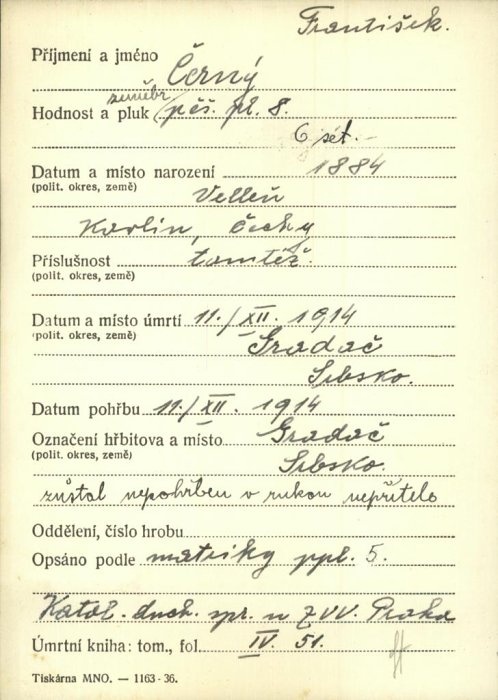 František.
Příjmení a jméno Černý
zeměbr.
Hodnost a pluk pěš. pl. 8.
6 set.
Datum a místo narození 1884
(polit. okres, země) Veleň
Karlín, Čechy
Příslušnost tamtéž.
(polit. okres, země)
Datum a místo úmrtí 11./XII. 1914
(polit. okres, země) Gradač
Srbsko.
Datum pohřbu 11./XII. 1914
Označení hřbitova a místo Gradač
(polit. okres, země) Srbsko.
zůstal nepohřben v rukou nepřítele
Oddělení, číslo hrobu
Opsáno podle matriky ppl. 5.
Katol. duch. spr. u ZVV. Praha
Úmrtní kniha: tom., fol. IV. 51.
Tiskárna MNO. — 1163-36.